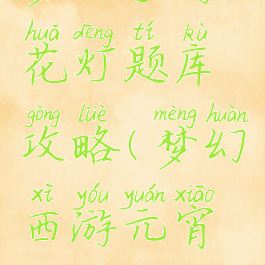 huā dēng tí kù
花灯题库
gōng lüè mèng huàn
攻略(梦幻
xī yóu yuán xiāo
西游元宵